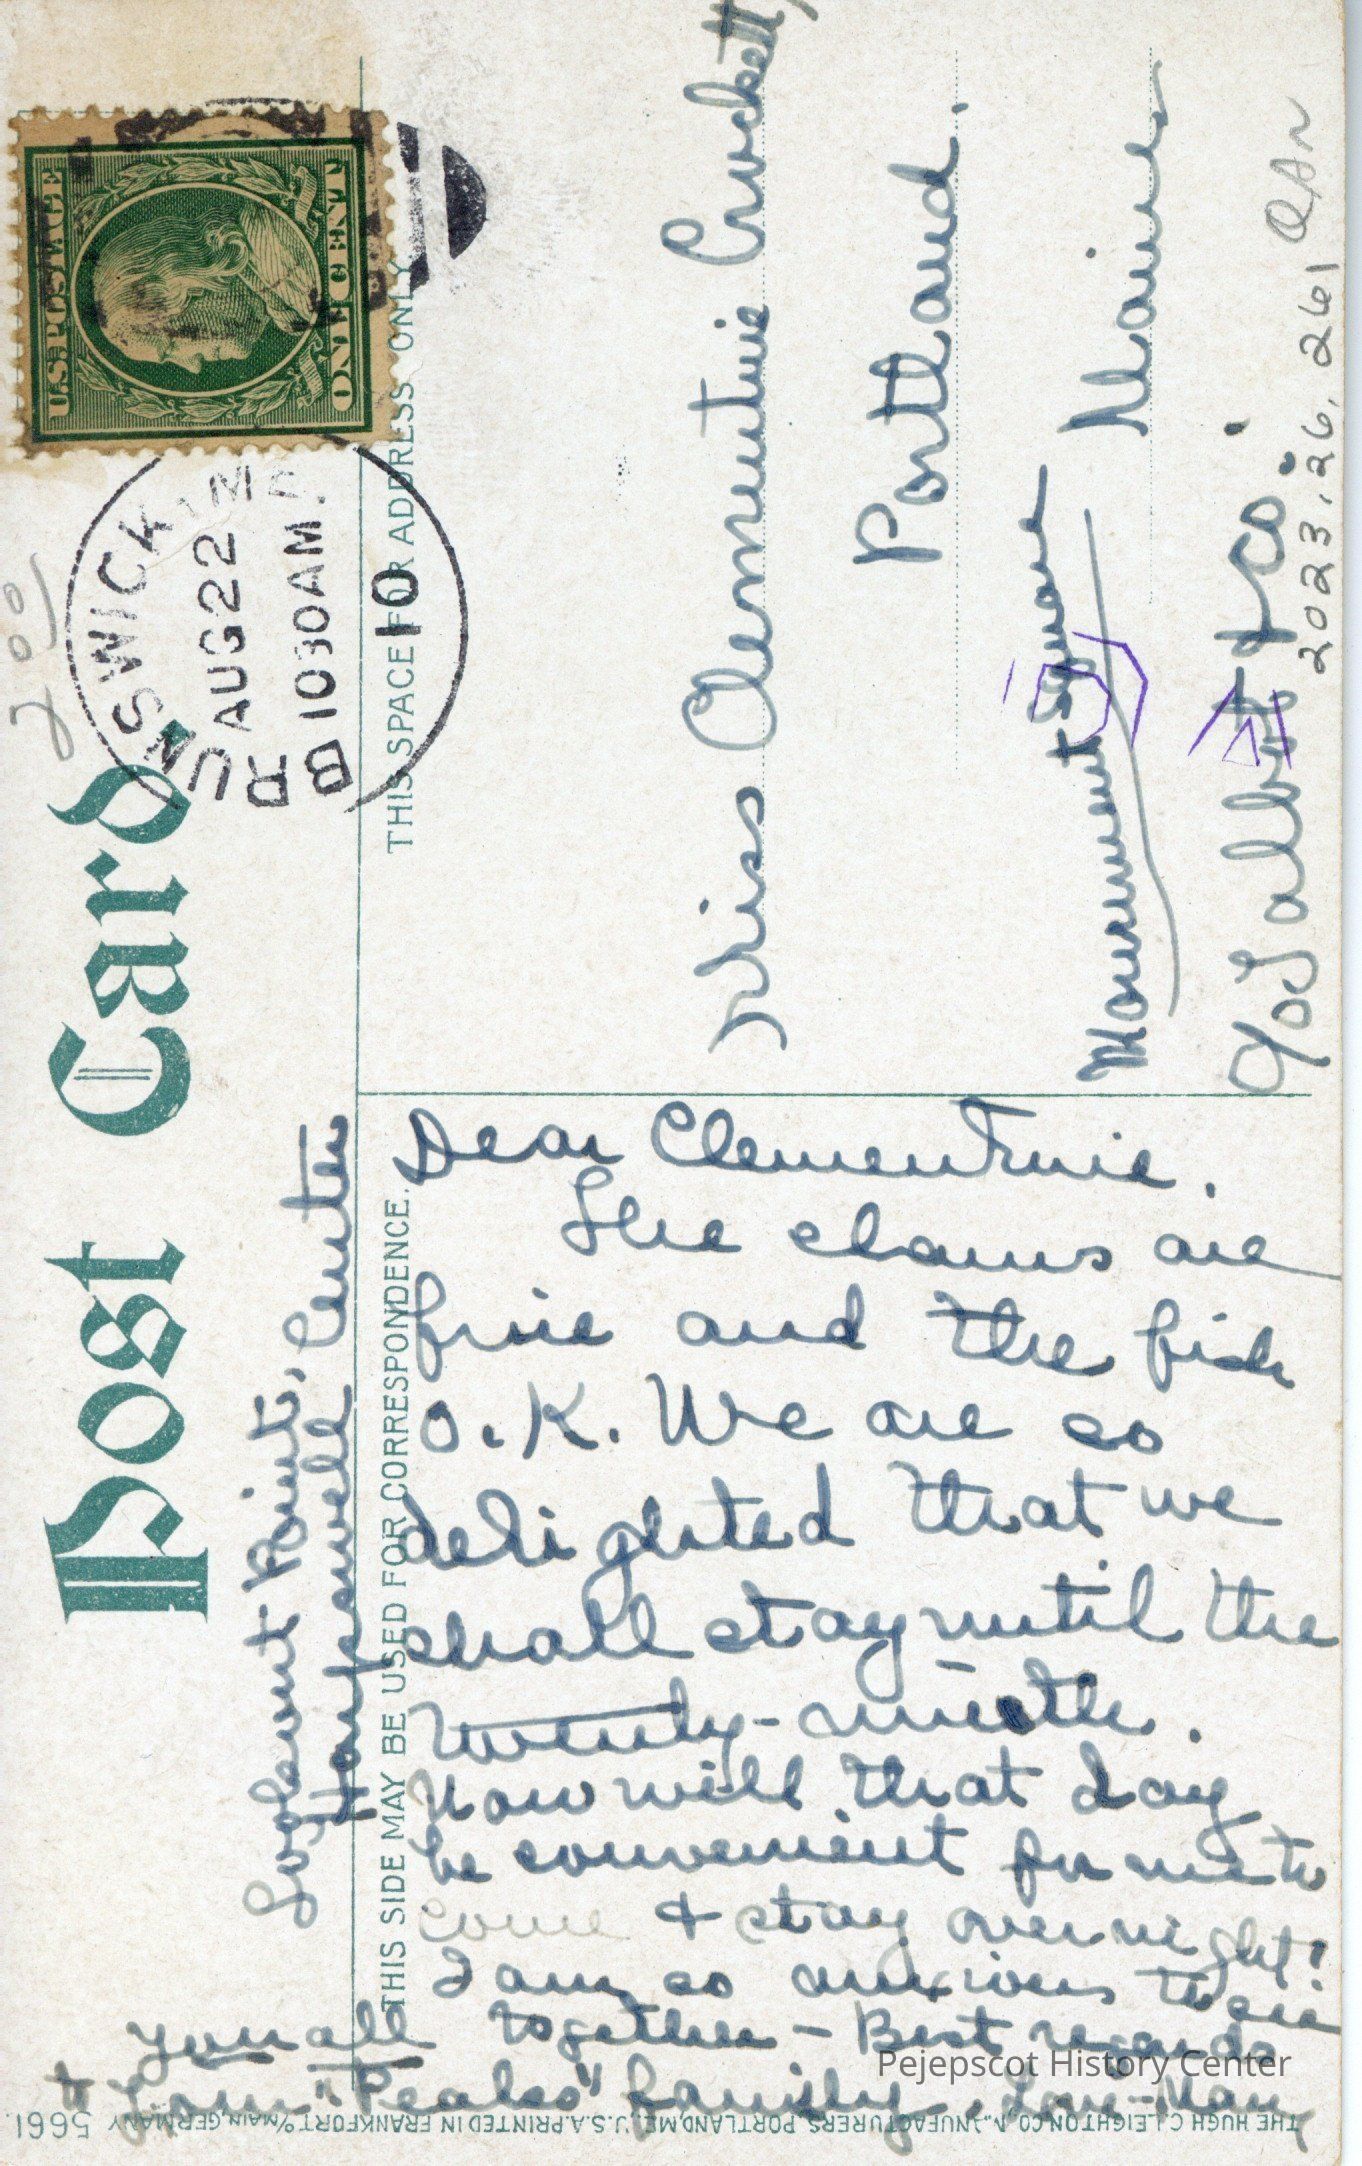 Post Card
THIS SIDE MAY BE USED FOR CORRESPONDENCE.
THIS SPACE FOR ADDRESS ONLY
U.S. POSTAGE
ONE CENT
BRUNSWICK, ME.
AUG 22
10 30 AM
10
Point, Center
Harpswell
Dear Clementine.
The clams are
fine and the fish
O.K. We are so
delighted that we
shall stay until the
twenty-ninth.
Now will that day
be convenient for me to
come & stay over night!
I am so anxious to see
you all together - Best regards
to your "Peales" family. Love - May
Miss Clementine Crockett,
Portland.
Maine
Monument Square
c/o Talbot & Co.
2023.26.261
THE HUGH C. LEIGHTON CO., MANUFACTURERS, PORTLAND, ME., U.S.A. PRINTED IN FRANKFORT o/MAIN, GERMANY
5661.
Pejepscot History Center